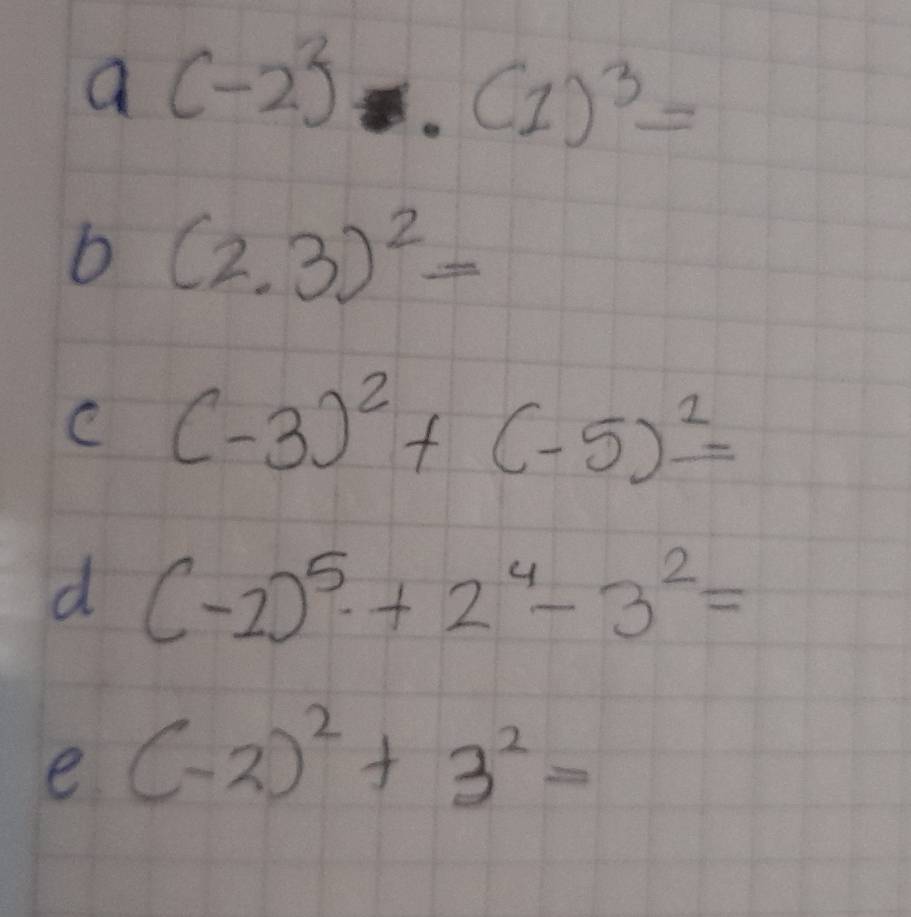 a (-2³) . (1)³ =
b (2.3)² =
c (-3)² + (-5)² =
d (-2)⁵ . + 2⁴ - 3² =
e (-2)² + 3² =